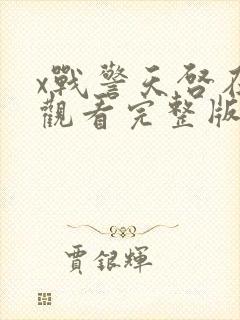 x戰警天啓在
觀看完整版
賈銀輝